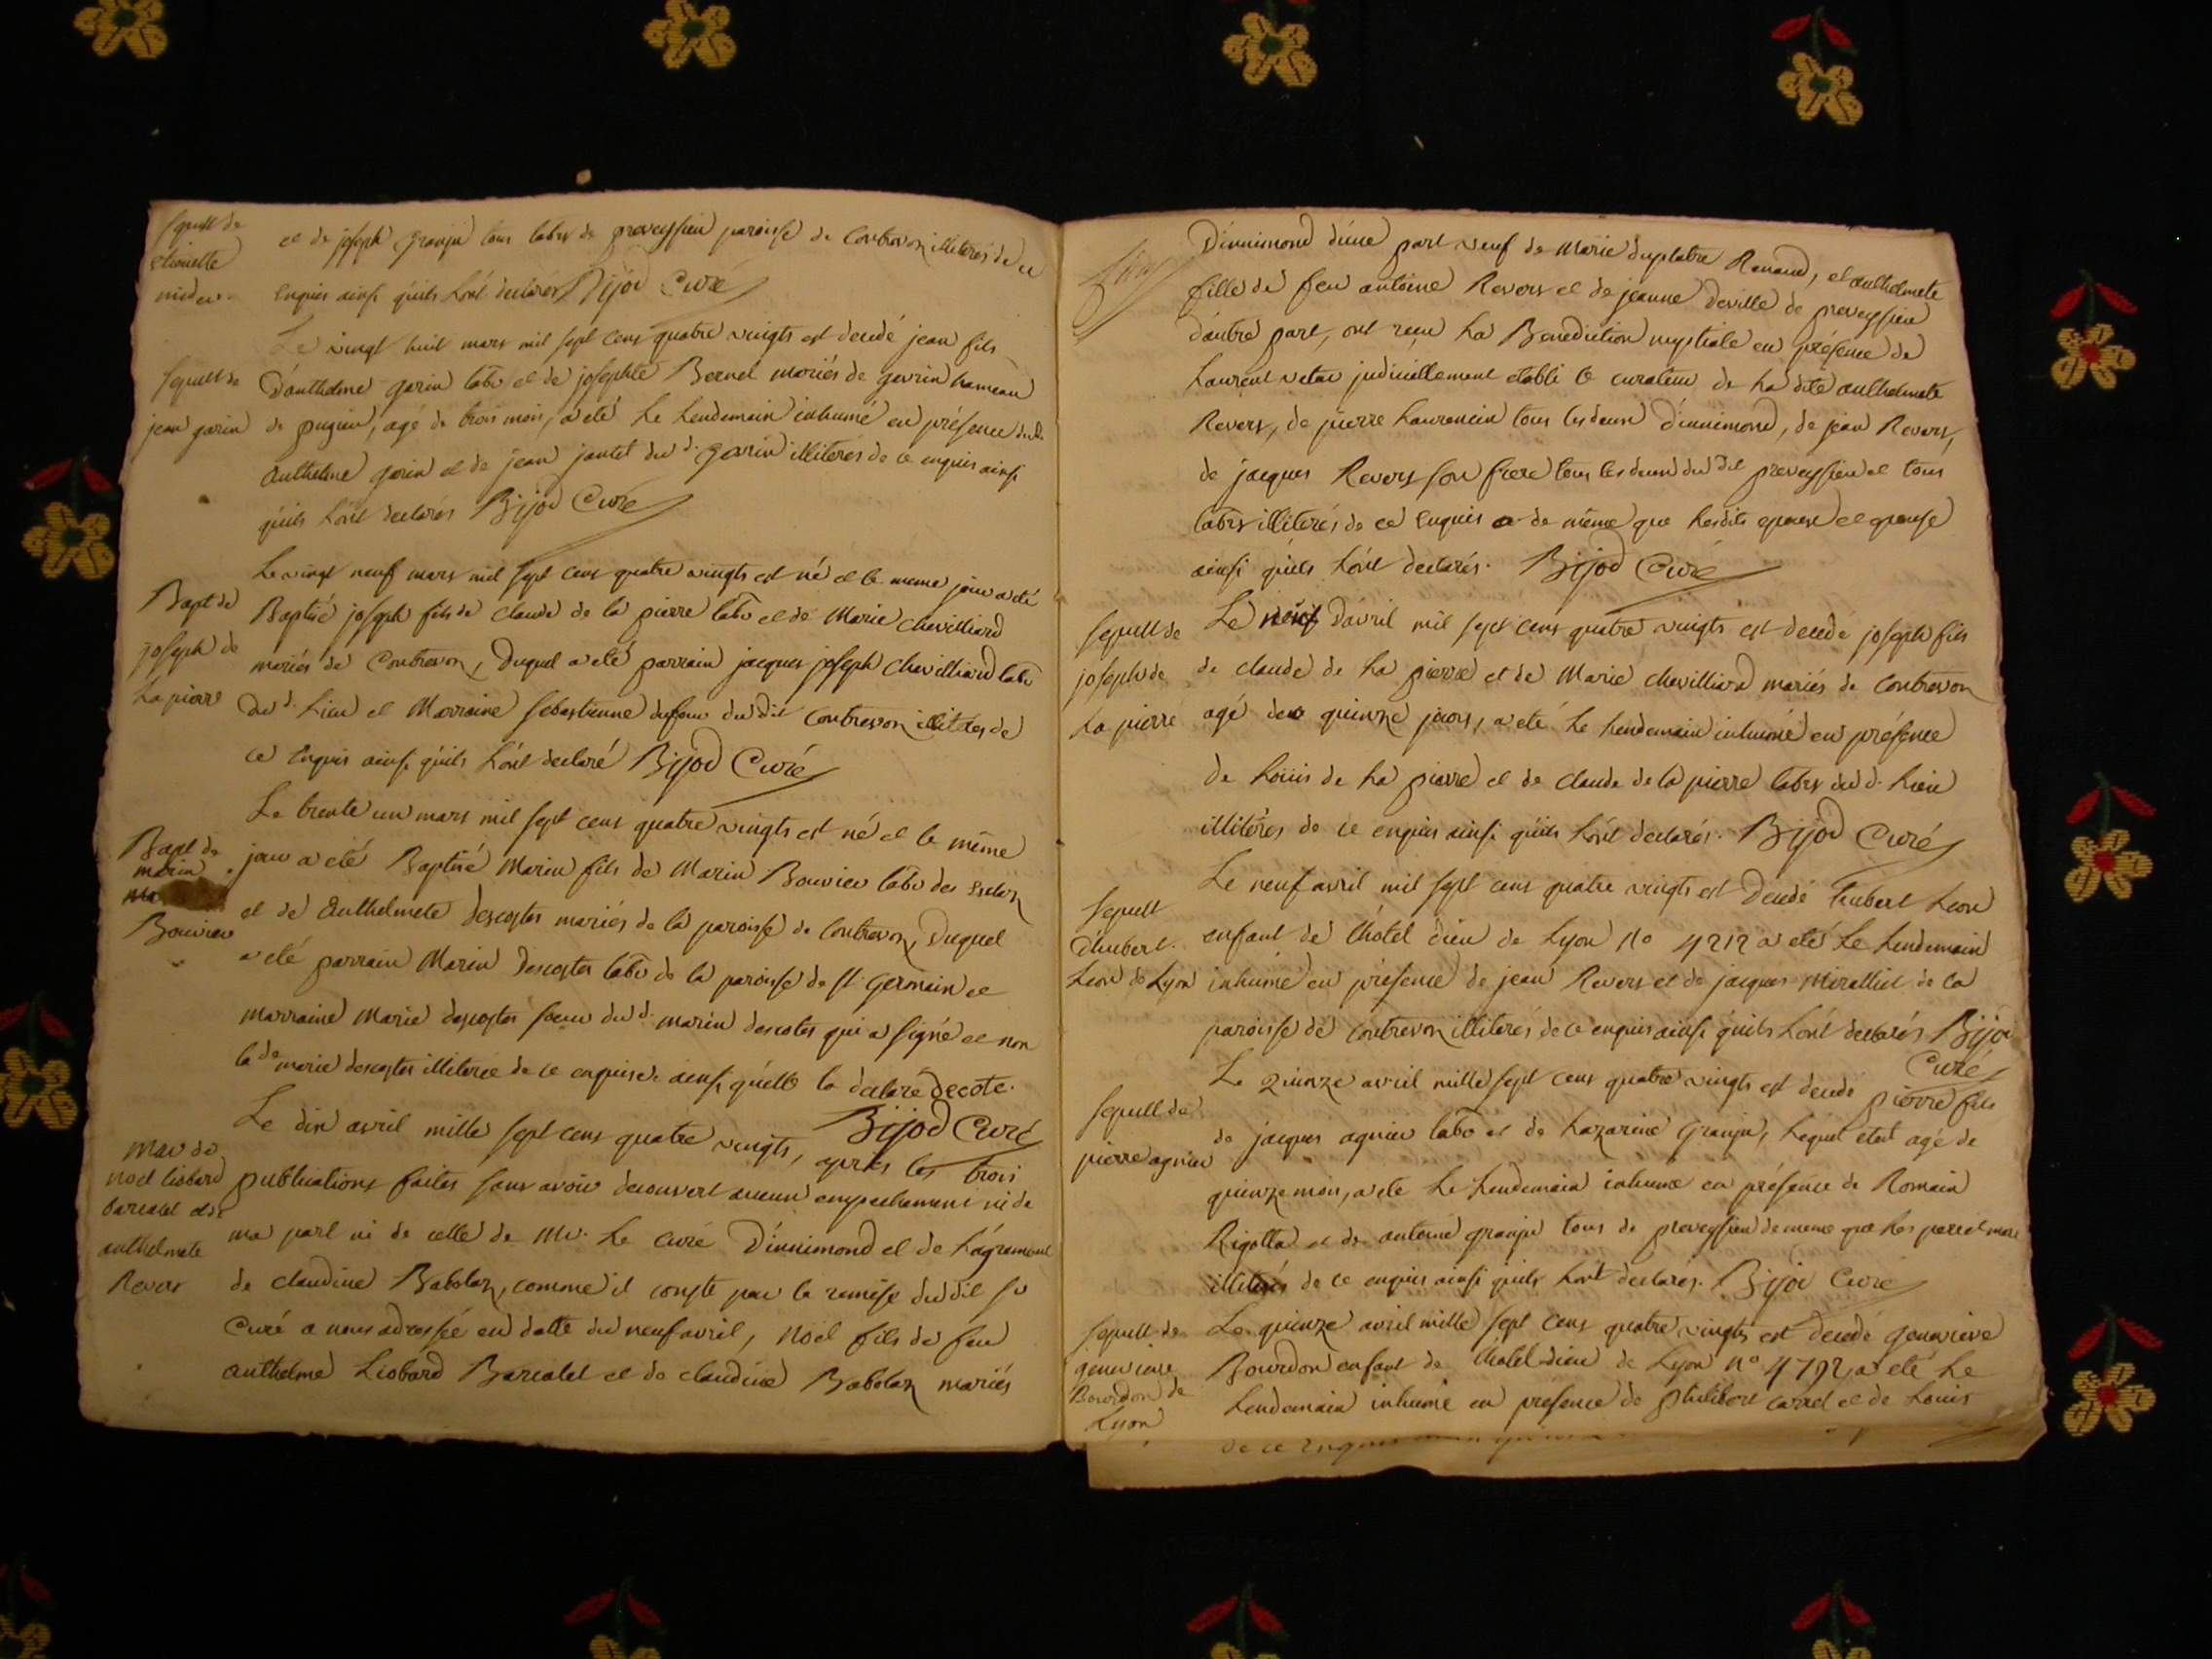 sepult de
etiennette
et de joseph Granju tous labrs de preveyssieu paroisse de Contrevoz illiterés de ce
enquis ainsi qu'ils l'ont declarés Bijod Curé
Le vingt huit mars mil sept cens quatre vingts est decedé jean fils
sepult de
jean garin
d'anthelme garin labr et de josephte Bernel mariés de gevrin hameau
de pugieu, agé de trois mois, a eté le lendemain inhumé en présence dud.
anthelme garin et de jean jantet du d. gevrin illiterés de ce enquis ainsi
qu'ils l'ont declarés Bijod Curé
Bapt de
joseph de
la pierre
Le vingt neuf mars mil sept cens quatre vingts est né et le meme jour a eté
Baptisé joseph fils de claude de la pierre labr et de Marie chevilliard
mariés de Contrevoz, Duquel a eté parrain jacques joseph chevilliard labr
du d. Lieu et Marraine sebastienne dufour du dit Contrevoz illiterés de
ce enquis ainsi qu'ils l'ont declaré Bijod Curé
Bapt de
marin
Bouvier
Le trente un mars mil sept cens quatre vingts est né et le même
jour a eté Baptisé Marin fils de Marin Bouvier labr
et de Anthelmete descostes mariés de la paroisse de Contrevoz, Duquel
a eté parrain Marin descostes labr de la paroisse de st. germain et
marraine Marie descostes soeur du d. marin descotes qui a signé et non
la de marie descostes illiterée de ce enquise ainsi qu'elle la declaré decote.
Bijod Curé
mar de
noel liobard
barcatel et de
anthelmete
Revers
Le dix avril mille sept cens quatre vingts, après les trois
publications faites sans avoir decouvert aucun empechement ni de
ma part ni de celle de Mr. le curé d'innimond et de l'agrement
de claudine Babolaz, comme il conste par la remise du dit sr
Curé a nous adressée en datte du neuf avril, Noël fils de feu
anthelme Liobard Barcatel et de claudine Babolaz mariés
D'innimond d'une part veuf de Marie duplatre Renaud, et anthelmete
fille de feu antoine Revers et de jeanne Deville de preveyssieu
d'autre part, ont reçu la Benediction nuptiale en présence de
Laurent judiciellement etabli le curateur de la dite anthelmete
Revers, de pierre Laurencin tous les deux d'innimond, de jean Revers,
de jacques Revers son frere tous les deux du dit preveyssieu et tous
labrs illiterés de ce enquis de même que lesdits epoux et epouse
ainsi qu'ils l'ont declarés. Bijod Curé
sepult de
joseph de
la pierre
Le neuf d'avril mil sept cens quatre vingts est decedé joseph fils
de claude de la pierre et de Marie chevilliard mariés de Contrevoz
agé de quinze jours, a eté le lendemain inhumé en présence
de Loüis de la pierre et de claude de la pierre labrs du d. lieu
illitérés de ce enquis ainsi qu'ils l'ont declarés. Bijod Curé
sepult
d'hubert
Leon de Lyon
Le neuf avril mil sept cens quatre vingts est Decedé hubert Leon
enfant de l'hôtel dieu de Lyon No 4212 a eté le lendemain
inhumé en présence de jean Revers et de jacques Miralliet de la
paroisse de Contrevoz illiterés de ce enquis ainsi qu'ils l'ont declarés Bijod
Curé
sepult de
pierre agnier
Le quinze avril mille sept cens quatre vingts est decedé pierre fils
de jacques agnier labr et de Lazarine Granju, lequel etoit agé de
quinze mois, a eté le lendemain inhumé en présence de Romain
Rigollet et de antoine granju tous de preveyssieu de meme que les pere et mere
illiterés de ce enquis ainsi qu'ils l'ont declarés. Bijod Curé
sepult de
genevieve
Bourdon de
Lyon
Le quinze avril mille sept cens quatre vingts est decedé genevieve
Bourdon enfant de l'hotel dieu de Lyon no 4792 a eté le
lendemain inhumé en presence de philibert carrel et de Louis
de ce enquis